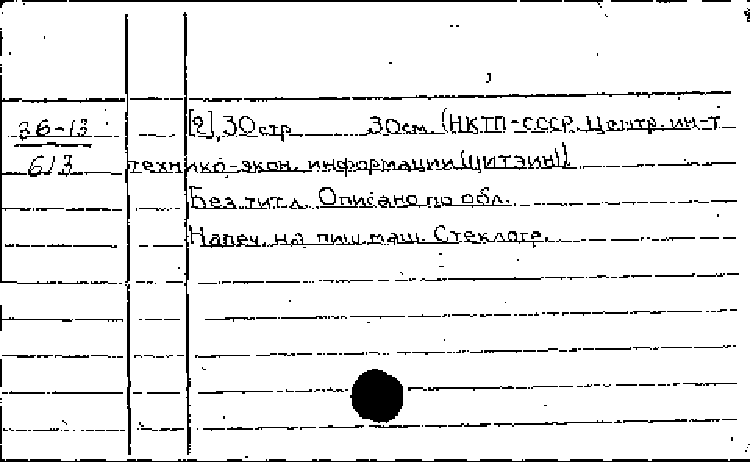 36-13 [2], 30 стр. 30 см. (НКТП-СССР. Центр. ин-т
613 технико-экон. информации (ЦИТЭИН))
Без тит. л. Описано по обл.
Напеч. на пиш. маш. Стеклогр.